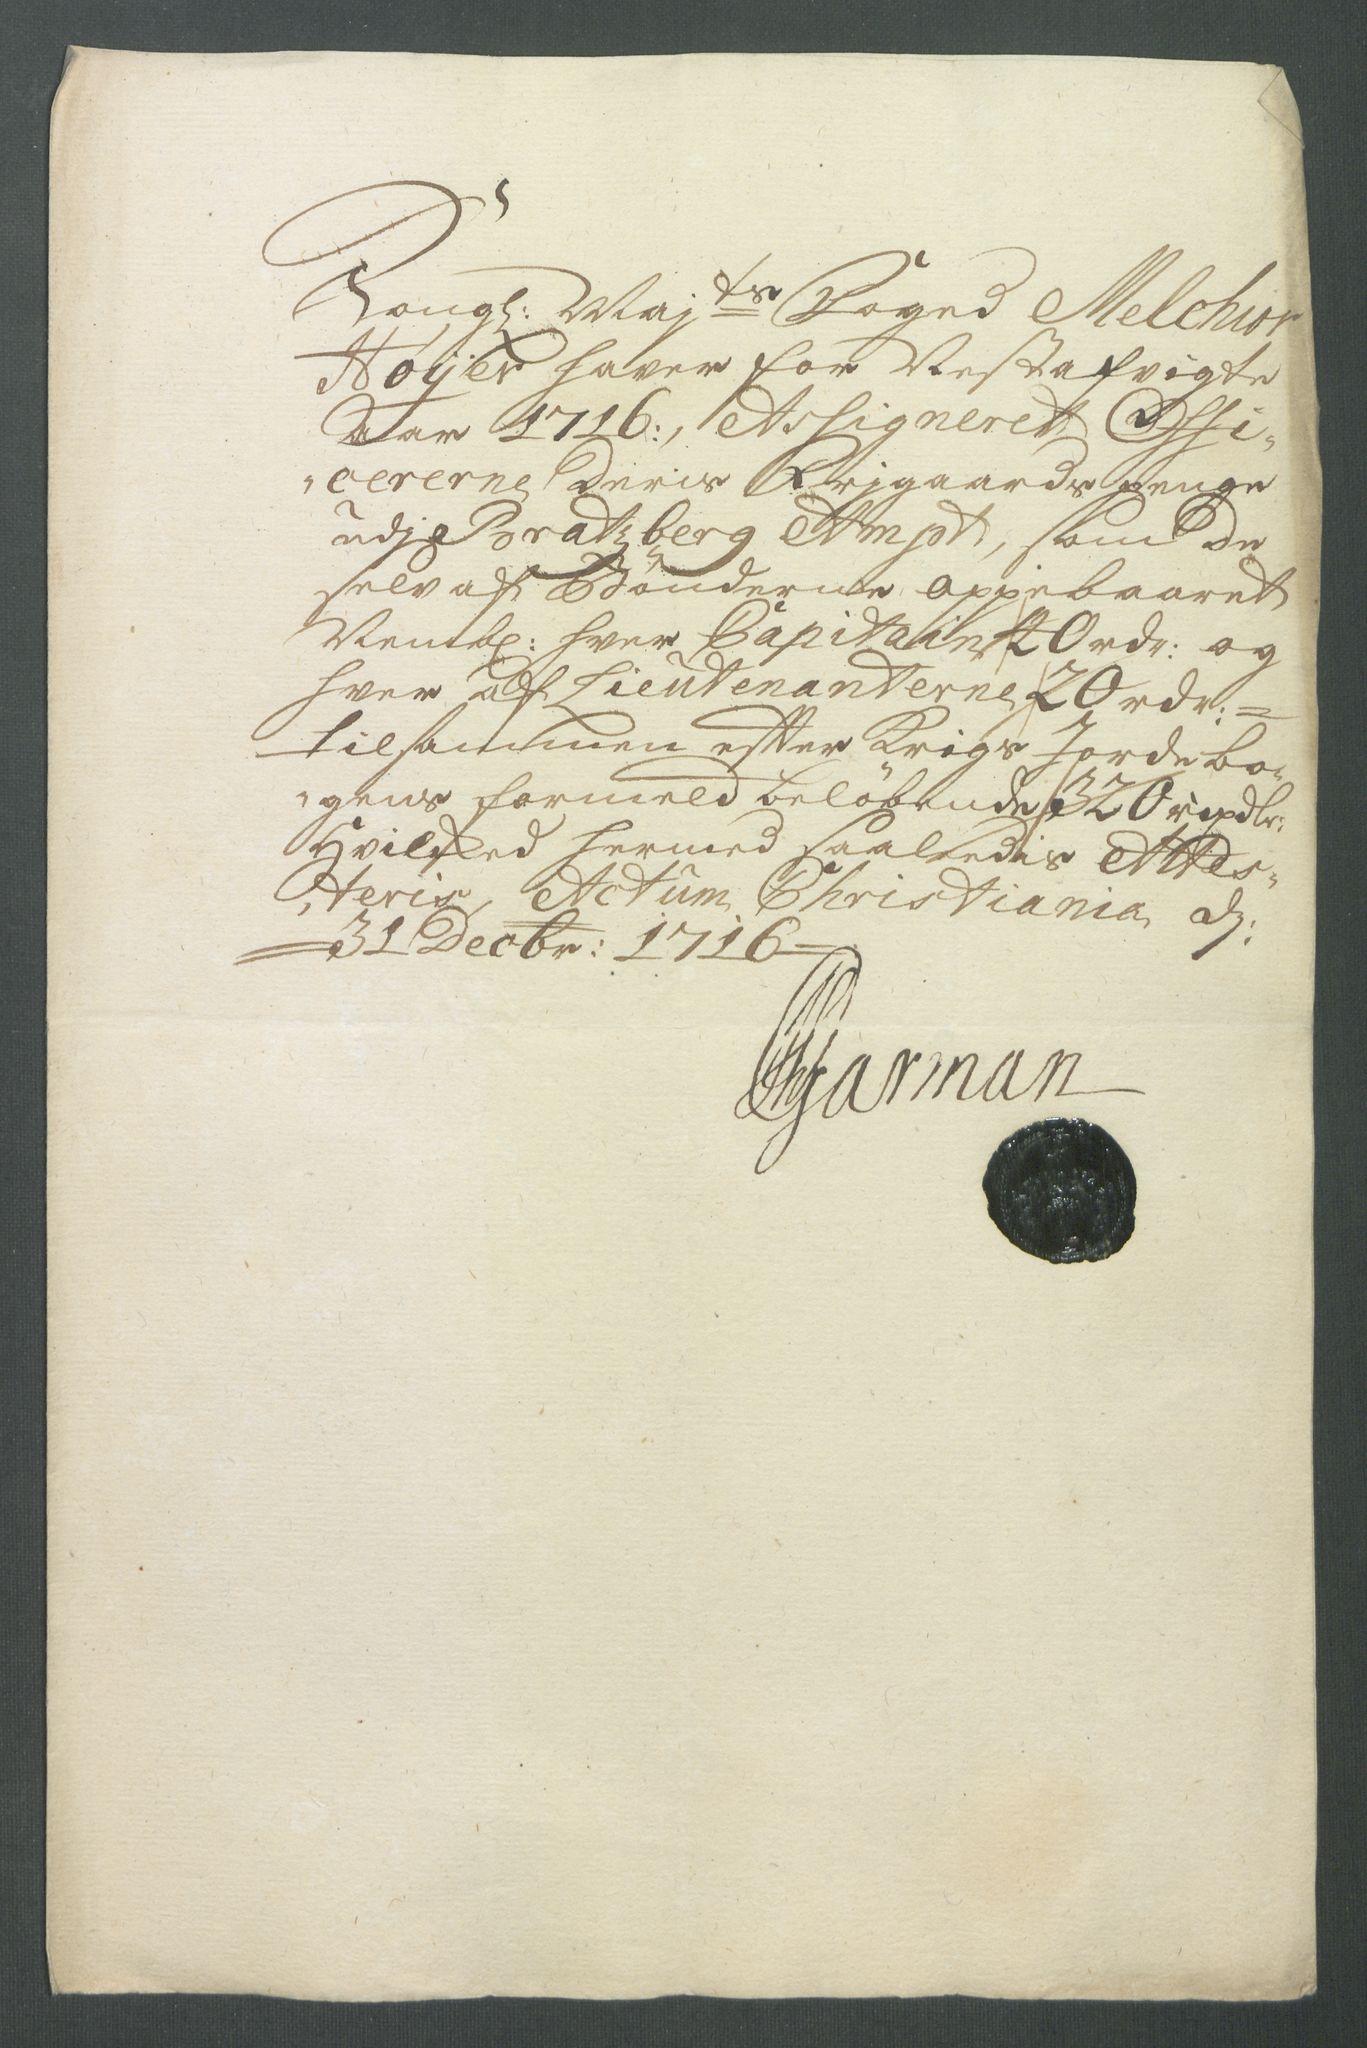 Kongl: Maj^ts Foged Melchior
Höyer haver for Nestafvigte
Aar 1716:, Assigneret Offi-
cererne Deris Krjgaards penge
udj Bratzberg Ampt, som de
selv af Bönderne oppebaaret
Nembl: hver Capitain 40 rdr: og
hver af Lieutenanterne 20 rdr: =
tilsammen efter Krigs Jordebo-
gens formeld belöbende 320 ripdlr:
Hvilked hermed saaledis Attes-
teris, Actum Christiania d:
31 Decbr: 1716
Garman